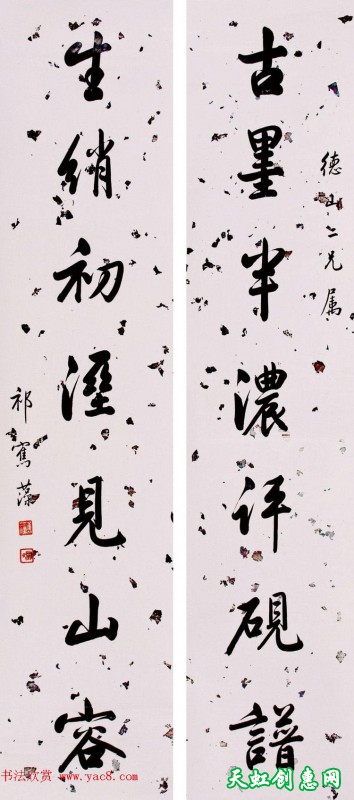 德山二兄属
古墨半濃評硯譜
生綃初溼見山容
祁寯藻
书法欣赏 www.yac8.com
天虹创惠网